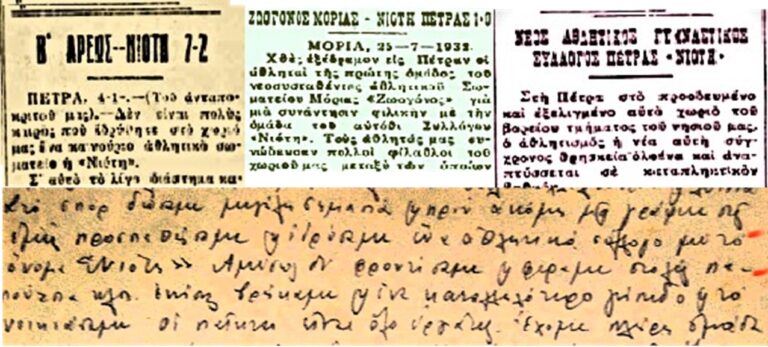 Β΄ ΑΡΕΩΣ--ΝΙΟΤΗ 7-2
ΠΕΤΡΑ, 4-1-.—(Τοῦ ἀνταπο-
κριτοῦ μας).—Δὲν εἶναι πολὺς
καιρὸς ποὺ ἱδρύθηκε στὸ χωριό
μας ἕνα καινούριο ἀθλητικὸ σω-
ματεῖο ἡ «Νιότη».
Σ' αὐτὸ τὸ λίγο διάστημα κα-
ΖΩΟΓΟΝΟΣ ΜΟΡΙΑΣ - ΝΙΟΤΗ ΠΕΤΡΑΣ 1-0
ΜΟΡΙΑ, 25-7-1933.
Χθὲς ἐξέδραμον εἰς Πέτραν οἱ
ἀθληταὶ τῆς πρώτης ὁμάδος τοῦ
νεοσυσταθέντος ἀθλητικοῦ Σω-
ματείου Μόριας «Ζωογόνος» γιὰ
μιὰ συνάντησιν φιλικὴν μὲ τὴν
ὁμάδα τοῦ αὐτόθι Συλλόγου
«Νιότη». Τοὺς ἀθλητάς μας συ-
νώδευσαν πολλοὶ φίλαθλοι τοῦ
χωριοῦ μας μεταξὺ τῶν ὁποίων
ΝΕΟΣ ΑΘΛΗΤΙΚΟΣ ΓΥΜΝΑΣΤΙΚΟΣ
ΣΥΛΛΟΓΟΣ ΠΕΤΡΑΣ «ΝΙΟΤΗ»
Στὴ Πέτρα στὸ προοδευμένο
καὶ ἐξελιγμένο αὐτὸ χωριὸ τοῦ
βορείου τμήματος τοῦ νησιοῦ μας,
ὁ ἀθλητισμὸς ἡ νέα αὐτὴ σύγ-
χρονος θρησκεία ὁλοένα καὶ ἀνα-
πτύσσεται σὲ καταπληκτικὸν
σπορ δώσαμε μεγάλη σημασία πρὶν ἀκόμη μᾶς γράψετε
προσπαθήσαμε ἱδρύσαμε ἕνα ἀθλητικὸ σύλλογο μὲ τὸ
ὄνομα «Νιότη» Ἀμέσως φροντίσαμε φέραμε στολὲς πα-
πούτσια κλπ. Ἐπίσης βρήκαμε ἕνα καταλληλότερο γήπεδο τὸ
νοικιάσαμε ὅλο ἐργάτες. Ἔχομε πλήρη ὁμάδα